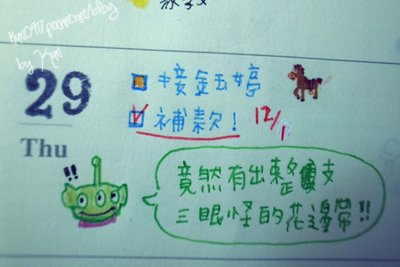 kun0917.pixnet.net/blog
by Kuni
29
Thu
接金玉婷
補款! 12/1
!!
竟然有出整隻支
三眼怪的花邊帶!!